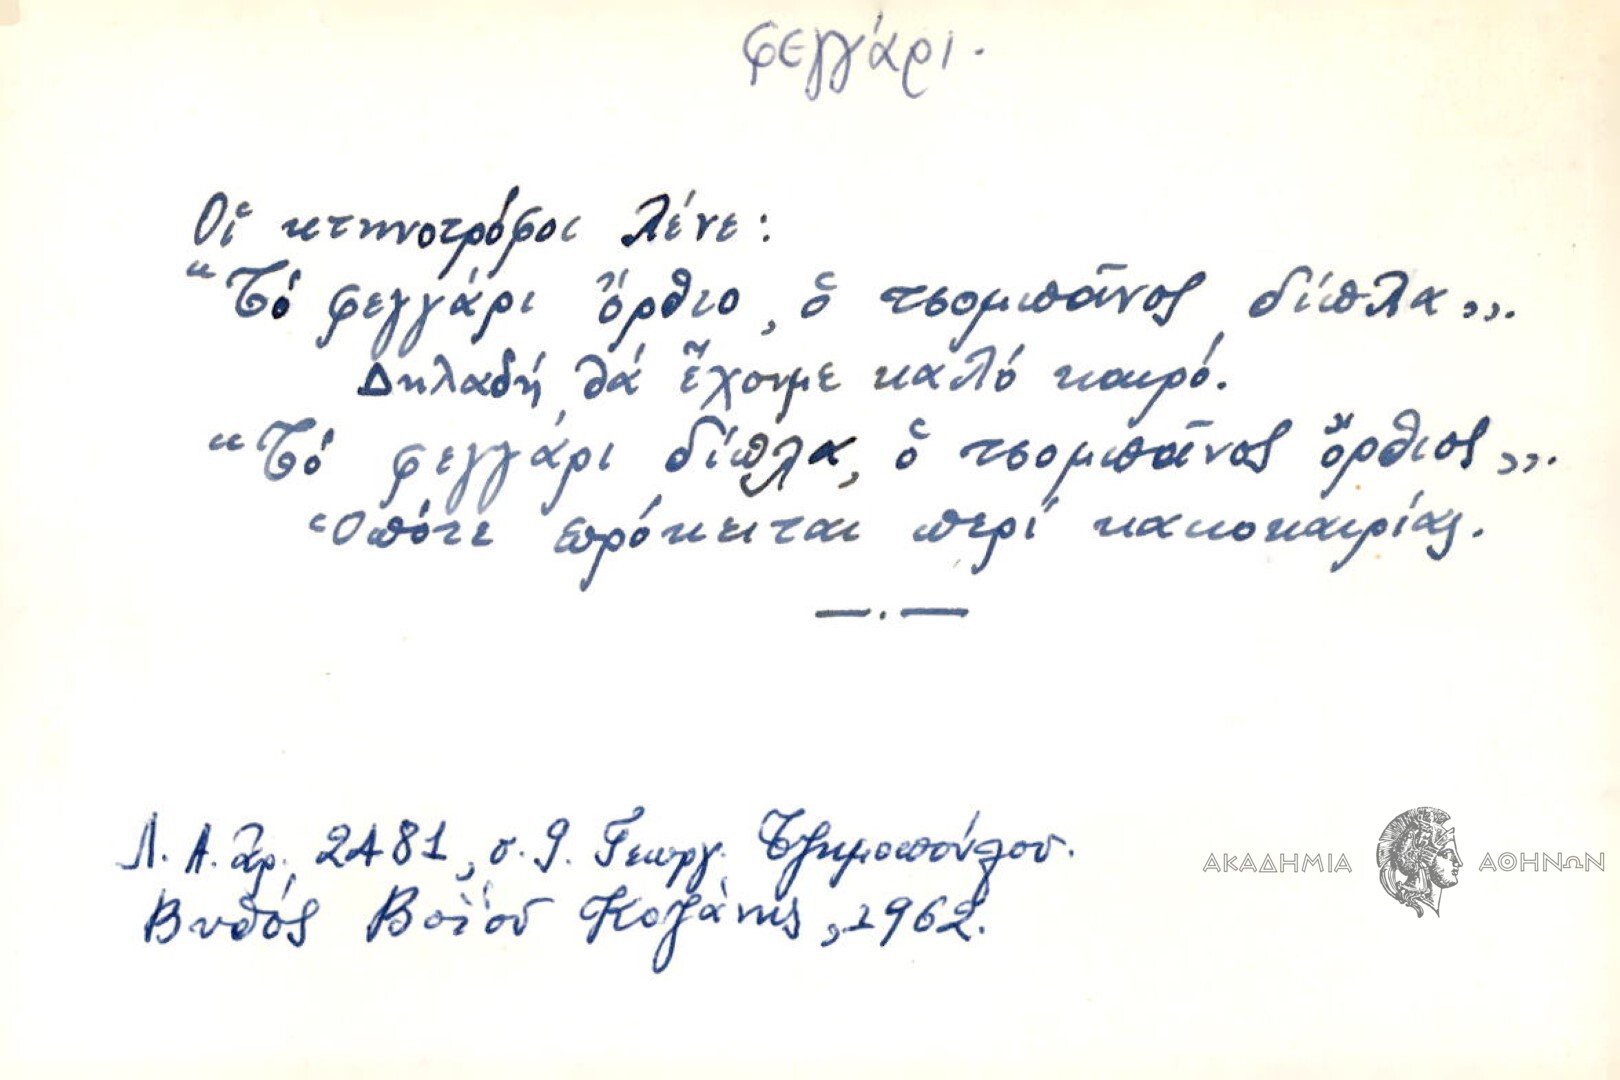 φεγγάρι.
Οἱ κτηνοτρόφοι λένε:
“Τό φεγγάρι ὄρθιο, ὁ τσομπᾶνος δίπλα„.
Δηλαδή, θά ἔχουμε καλό καιρό.
“Τό φεγγάρι δίπλα, ὁ τσομπᾶνος ὄρθιος„.
Ὁπότε πρόκειται περί κακοκαιρίας.
—.—
Λ. Α. ἀρ. 2481, σ. 9. Γεωργ. Τζημοπούλου.
Βυθός Βοΐου Κοζάνης, 1962.
ΑΚΑΔΗΜΙΑ ΑΘΗΝΩΝ